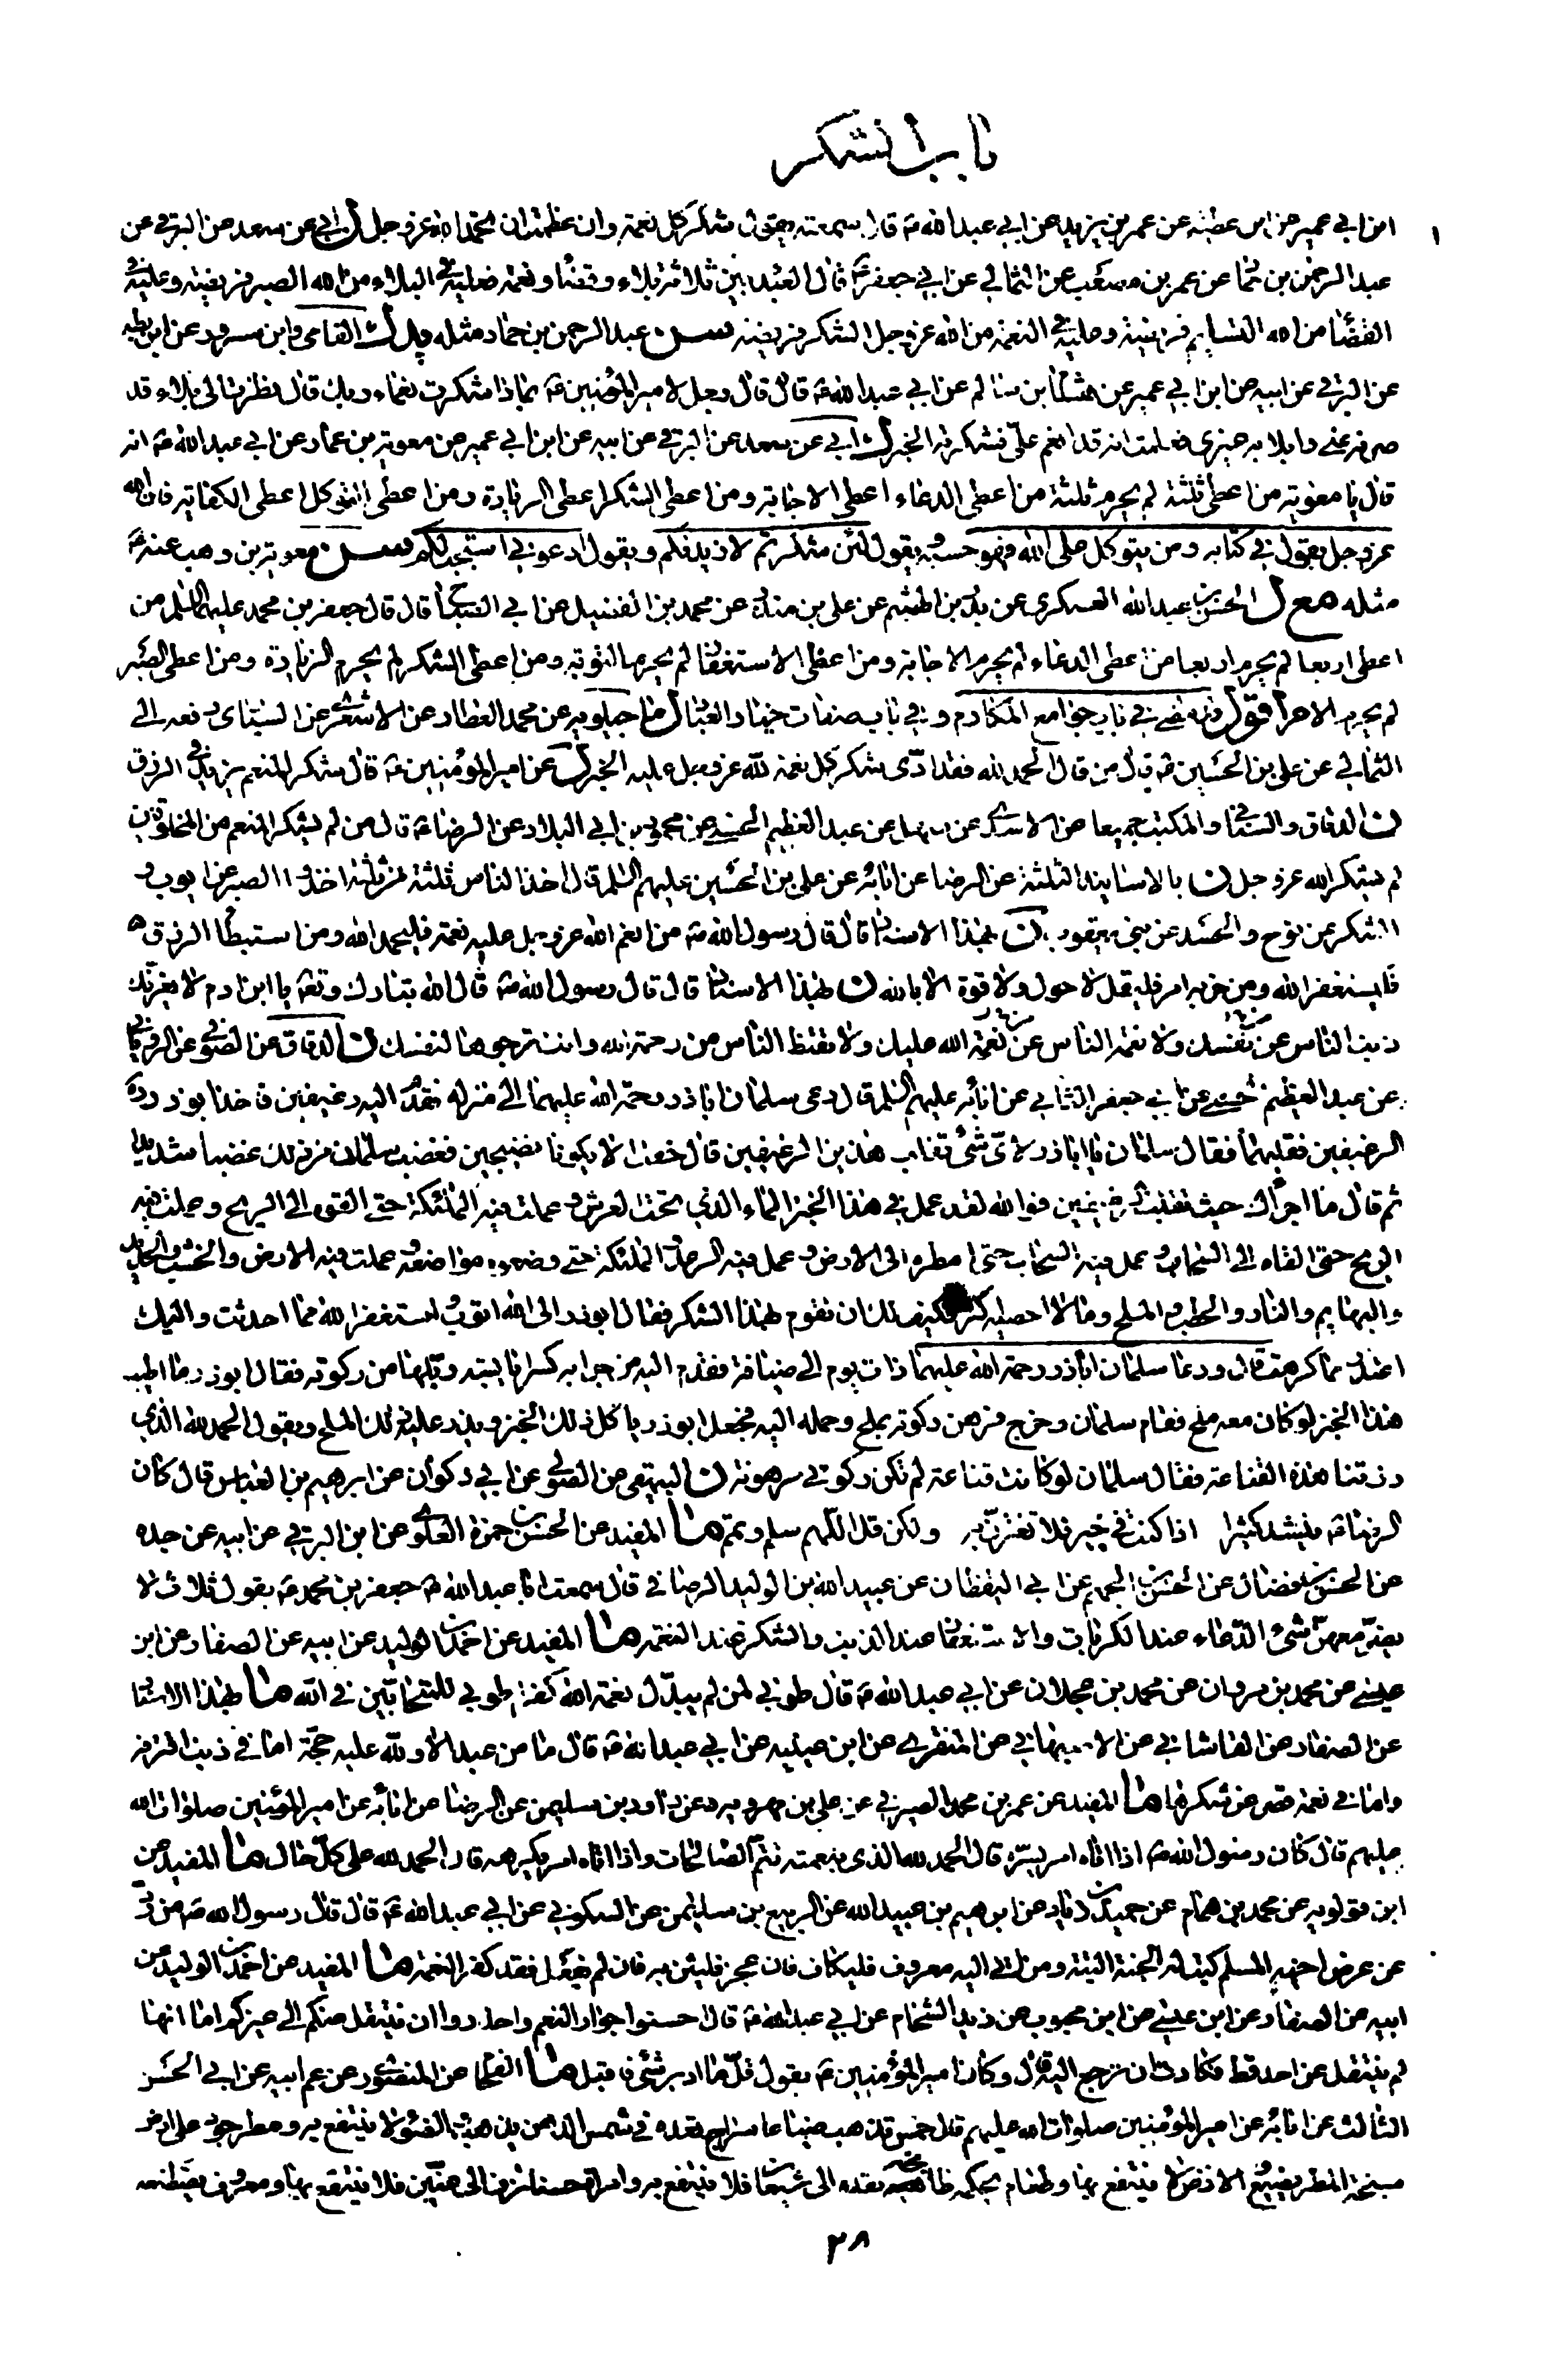 باب الشكر
ابن ابي عمير عن ابن عطية عن عمر بن يزيد عن ابي عبد الله ع قال سمعته يقول شكر كل نعمة وان عظمت ان تحمد الله عز وجل ل ابي عن سعد عن البرقي عن
عبد الرحمن بن حماد عن عمر بن مصعب عن الثمالي عن ابي جعفر ع قال العبد بين ثلاثة بلاء وقضاء ونعمة فعليه في البلاء من الله الصبر فريضة وعليه في
القضاء من الله التسليم فريضة وعليه في النعمة من الله عز وجل الشكر فريضة سن عبد الرحمن بن حماد مثله القامي وابن مسرور عن ابن بطة
عن البرقي عن ابيه عن ابن ابي عمير عن هشام بن سالم عن ابي عبد الله ع قال قال رجل لامير المؤمنين ع بماذا شكرت نعماء ربك قال نظرت الى بلاء قد
صرفه عني وابلا به غيري فعلمت انه قد انعم علي فشكرته الخبر ل ابي عن سعد عن البرقي عن ابيه عن ابن ابي عمير عن معوية بن عمار عن ابي عبد الله ع انه
قال يا معوية من اعطى ثلثة لم يحرم ثلثة من اعطى الدعاء اعطى الاجابة ومن اعطى الشكر اعطى الزيادة ومن اعطى التوكل اعطى الكفاية فان الله
عز وجل يقول في كتابه ومن يتوكل على الله فهو حسبه ويقول لئن شكرتم لازيدنكم ويقول ادعوني استجب لكم سن معوية بن وهب عنه ع
مثله مع ل الحسن بن عبد الله العسكري عن بدر بن الهيثم عن علي بن منذر عن محمد بن الفضيل عن ابي الصباح قال قال جعفر بن محمد عليهما السلم من
اعطى اربعا لم يحرم اربعا من اعطى الدعاء لم يحرم الاجابة ومن اعطى الاستغفار لم يحرم التوبة ومن اعطى الشكر لم يحرم الزيادة ومن اعطى الصبر
لم يحرم الاجر اقول قد مضى في باب جوامع المكارم وفي باب صفات خيار العباد ل ماجيلويه عن محمد العطار عن الاشعري عن السياري رفعه الى
الثمالي عن علي بن الحسين ع قال من قال الحمد لله فقد ادى شكر كل نعمة لله عز وجل عليه الخبر ل عن امير المؤمنين ع قال شكر المنعم يزيد في الرزق
ن الدقاق والسناني والمكتب جميعا عن الاسدي عن سهل عن عبد العظيم الحسني عن محمود بن ابي البلاد عن الرضا ع قال من لم يشكر المنعم من المخلوقين
لم يشكر الله عز وجل ن بالاسانيد الثلثة عن الرضا عن ابائه عن علي بن الحسين عليهم السلم قال اخذ الناس ثلثة من ثلثة اخذوا الصبر عن ايوب و
الشكر عن نوح والحسد عن بني يعقوب ن بهذا الاسناد قال قال رسول الله ص من انعم الله عز وجل عليه نعمة فليحمد الله ومن استبطأ الرزق
فليستغفر الله ومن حزنه امر فليقل لا حول ولا قوة الا بالله ن بهذا الاسناد قال قال رسول الله ص قال الله تبارك وتعالى يا ابن ادم لا يغرنك
ذنب الناس عن نفسك ولا نعمة الناس عن نعمة الله عليك ولا تقنط الناس من رحمة الله وانت ترجوها لنفسك ن الدقاق عن الصوفي عن الروياني
عن عبد العظيم الحسني عن ابي جعفر الثاني عن ابائه عليهم السلم قال دعى سلمان ابا ذر رحمة الله عليهما الى منزله فقدم اليه رغيفين فاخذ ابو ذر
الرغيفين فقلبهما فقال سلمان يا ابا ذر لاي شيء تقلب هذين الرغيفين قال خفت الا يكونا نضيجين فغضب سلمان من ذلك غضبا شديدا
ثم قال ما اجرأك حيث تقلب الرغيفين فوالله لقد عمل في هذا الخبز الماء الذي تحت العرش وعملت فيه الملئكة حتى القوه الى الريح وعملت فيه
الريح حتى القاه الى السحاب وعمل فيه السحاب حتى امطره الى الارض وعمل فيه الرعد والملئكة حتى وضعوه مواضعه وعملت فيه الارض والخشب والحديد
والبهايم والنار والحطب والملح وما لا احصيه كثر فكيف لك ان تقوم بهذا الشكر فقال ابو ذر الى الله اتوب واستغفر الله مما احدثت واليك
اعتذر مما كرهت قال ودعا سلمان ابا ذر رحمة الله عليهما ذات يوم الى ضيافة فقدم اليه من جرابه كسرا يابسة وبلها من ركوته فقال ابو ذر ما اطيب
هذا الخبز لو كان معه ملح فقام سلمان وخرج فرهن ركوته بملح وحمله اليه فجعل ابو ذر ياكل ذلك الخبز ويذر عليه ذلك الملح ويقول الحمد لله الذي
رزقنا هذه القناعة فقال سلمان لو كانت قناعة لم تكن ركوتي مرهونة ن البيهقي عن الصولي عن ابي ذكوان عن ابرهيم بن العباس قال كان
الرضا ع ينشد كثيرا اذا كنت في خير فلا تغترر به ولكن قل اللهم سلم وتمم ما المفيد عن الحسن بن حمزة العلوي عن ابن البرقي عن ابيه عن جده
عن الحسن بن فضال عن الحسن بن الجهم عن ابي اليقظان عن عبيد الله بن الوليد الرصافي قال سمعت ابا عبد الله جعفر بن محمد ع يقول ثلاث لا
يضر معهن شيء الدعاء عند الكربات والاستغفار عند الذنب والشكر عند النعمة ما المفيد عن احمد بن الوليد عن ابيه عن الصفار عن ابن
عيسى عن محمد بن مروان عن محمد بن عجلان عن ابي عبد الله ع قال طوبى لمن لم يبدل نعمة الله كفرا طوبى للمتحابين في الله ما بهذا الاسناد
عن الصفار عن القاشاني عن الاصبهاني عن المنقري عن ابن عيينة عن ابي عبد الله ع قال ما من عبد الا ولله عليه حجة اما في ذنب اقترفه
واما في نعمة قصر عن شكرها ما المفيد عن عمر بن محمد الصيرفي عن علي بن مهرويه عن داود بن سليمن عن الرضا عن ابائه عن امير المؤمنين صلوات الله
عليهم قال كان رسول الله ص اذا اتاه امر يسره قال الحمد لله الذي بنعمته تتم الصالحات واذا اتاه امر يكرهه قال الحمد لله على كل حال ما المفيد عن
ابن قولويه عن محمد بن همام عن حميد بن زياد عن ابرهيم بن عبيد الله عن الربيع بن سليمن عن السكوني عن ابي عبد الله ع قال قال رسول الله ص من رد
عن عرض اخيه المسلم كتب له الجنة البتة ومن اتى اليه معروف فليكاف فان عجز فليثن به فان لم يفعل فقد كفر النعمة ما المفيد عن احمد بن الوليد عن
ابيه عن الصفار عن ابن عيسى عن ابن محبوب عن زيد الشحام عن ابي عبد الله ع قال احسنوا جوار النعم واحذروا ان تنتقل عنكم الى غيركم اما انها
لم تنتقل عن احد قط فكادت ان ترجع اليه قال وكان امير المؤمنين ع يقول قل ما ادبر شيء فاقبل ما الفحام عن المنصوري عن عم ابيه عن ابي الحسن
الثالث عن ابائه عن امير المؤمنين صلوات الله عليهم قال خمس تذهب ضياعا سراج تعده في شمس الدهن يذهب والضوء لا ينتفع به ومطر جود على ارض
سبخة المطر يضيع والارض لا ينتفع بها وطعام يحكمه طابخه يقدمه الى شبعان فلا ينتفع به وامراة حسناء تزف الى عنين فلا ينتفع بها ومعروف يصطنعه
٢٨